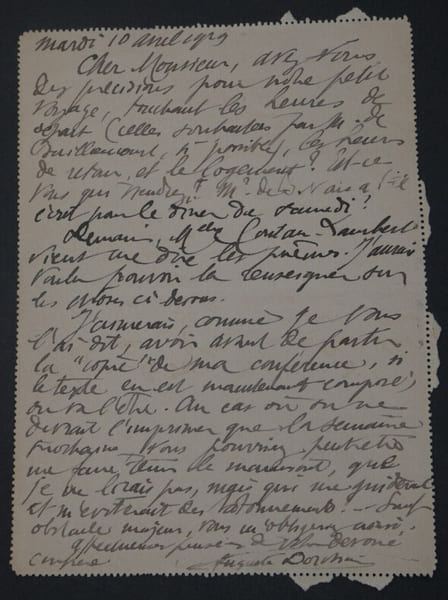 mardi 10 avril 1929
Cher Monsieur, avez vous
des précisions pour notre petit
voyage, touchant les heures de
départ (celles souhaitées par M. de
si possible), les heures
de retour, et le logement? Est-ce
vous qui viendrez? Mr de
écrit pour le diner du samedi?
Demain, Melle Coutan-Lambert
vient me dire les poèmes. J'aurais
voulu pouvoir la renseigner sur
les choses ci dessus.
J'aimerais, comme je vous
l'ai dit, avoir avant de partir
la "copie" de ma conférence, si
le texte en est maintenant composé
ou va l'être. Au cas où on ne
devrait l'imprimer que la semaine
prochaine, vous pourriez peut-être
me faire tenir le manuscrit, que
je ne lirais pas, mais qui me guiderait
et m'éviterait des tâtonnements. Sauf
obstacle majeur, vous m'obligerez aussi.
dévoué
confrère Auguste Dorchain